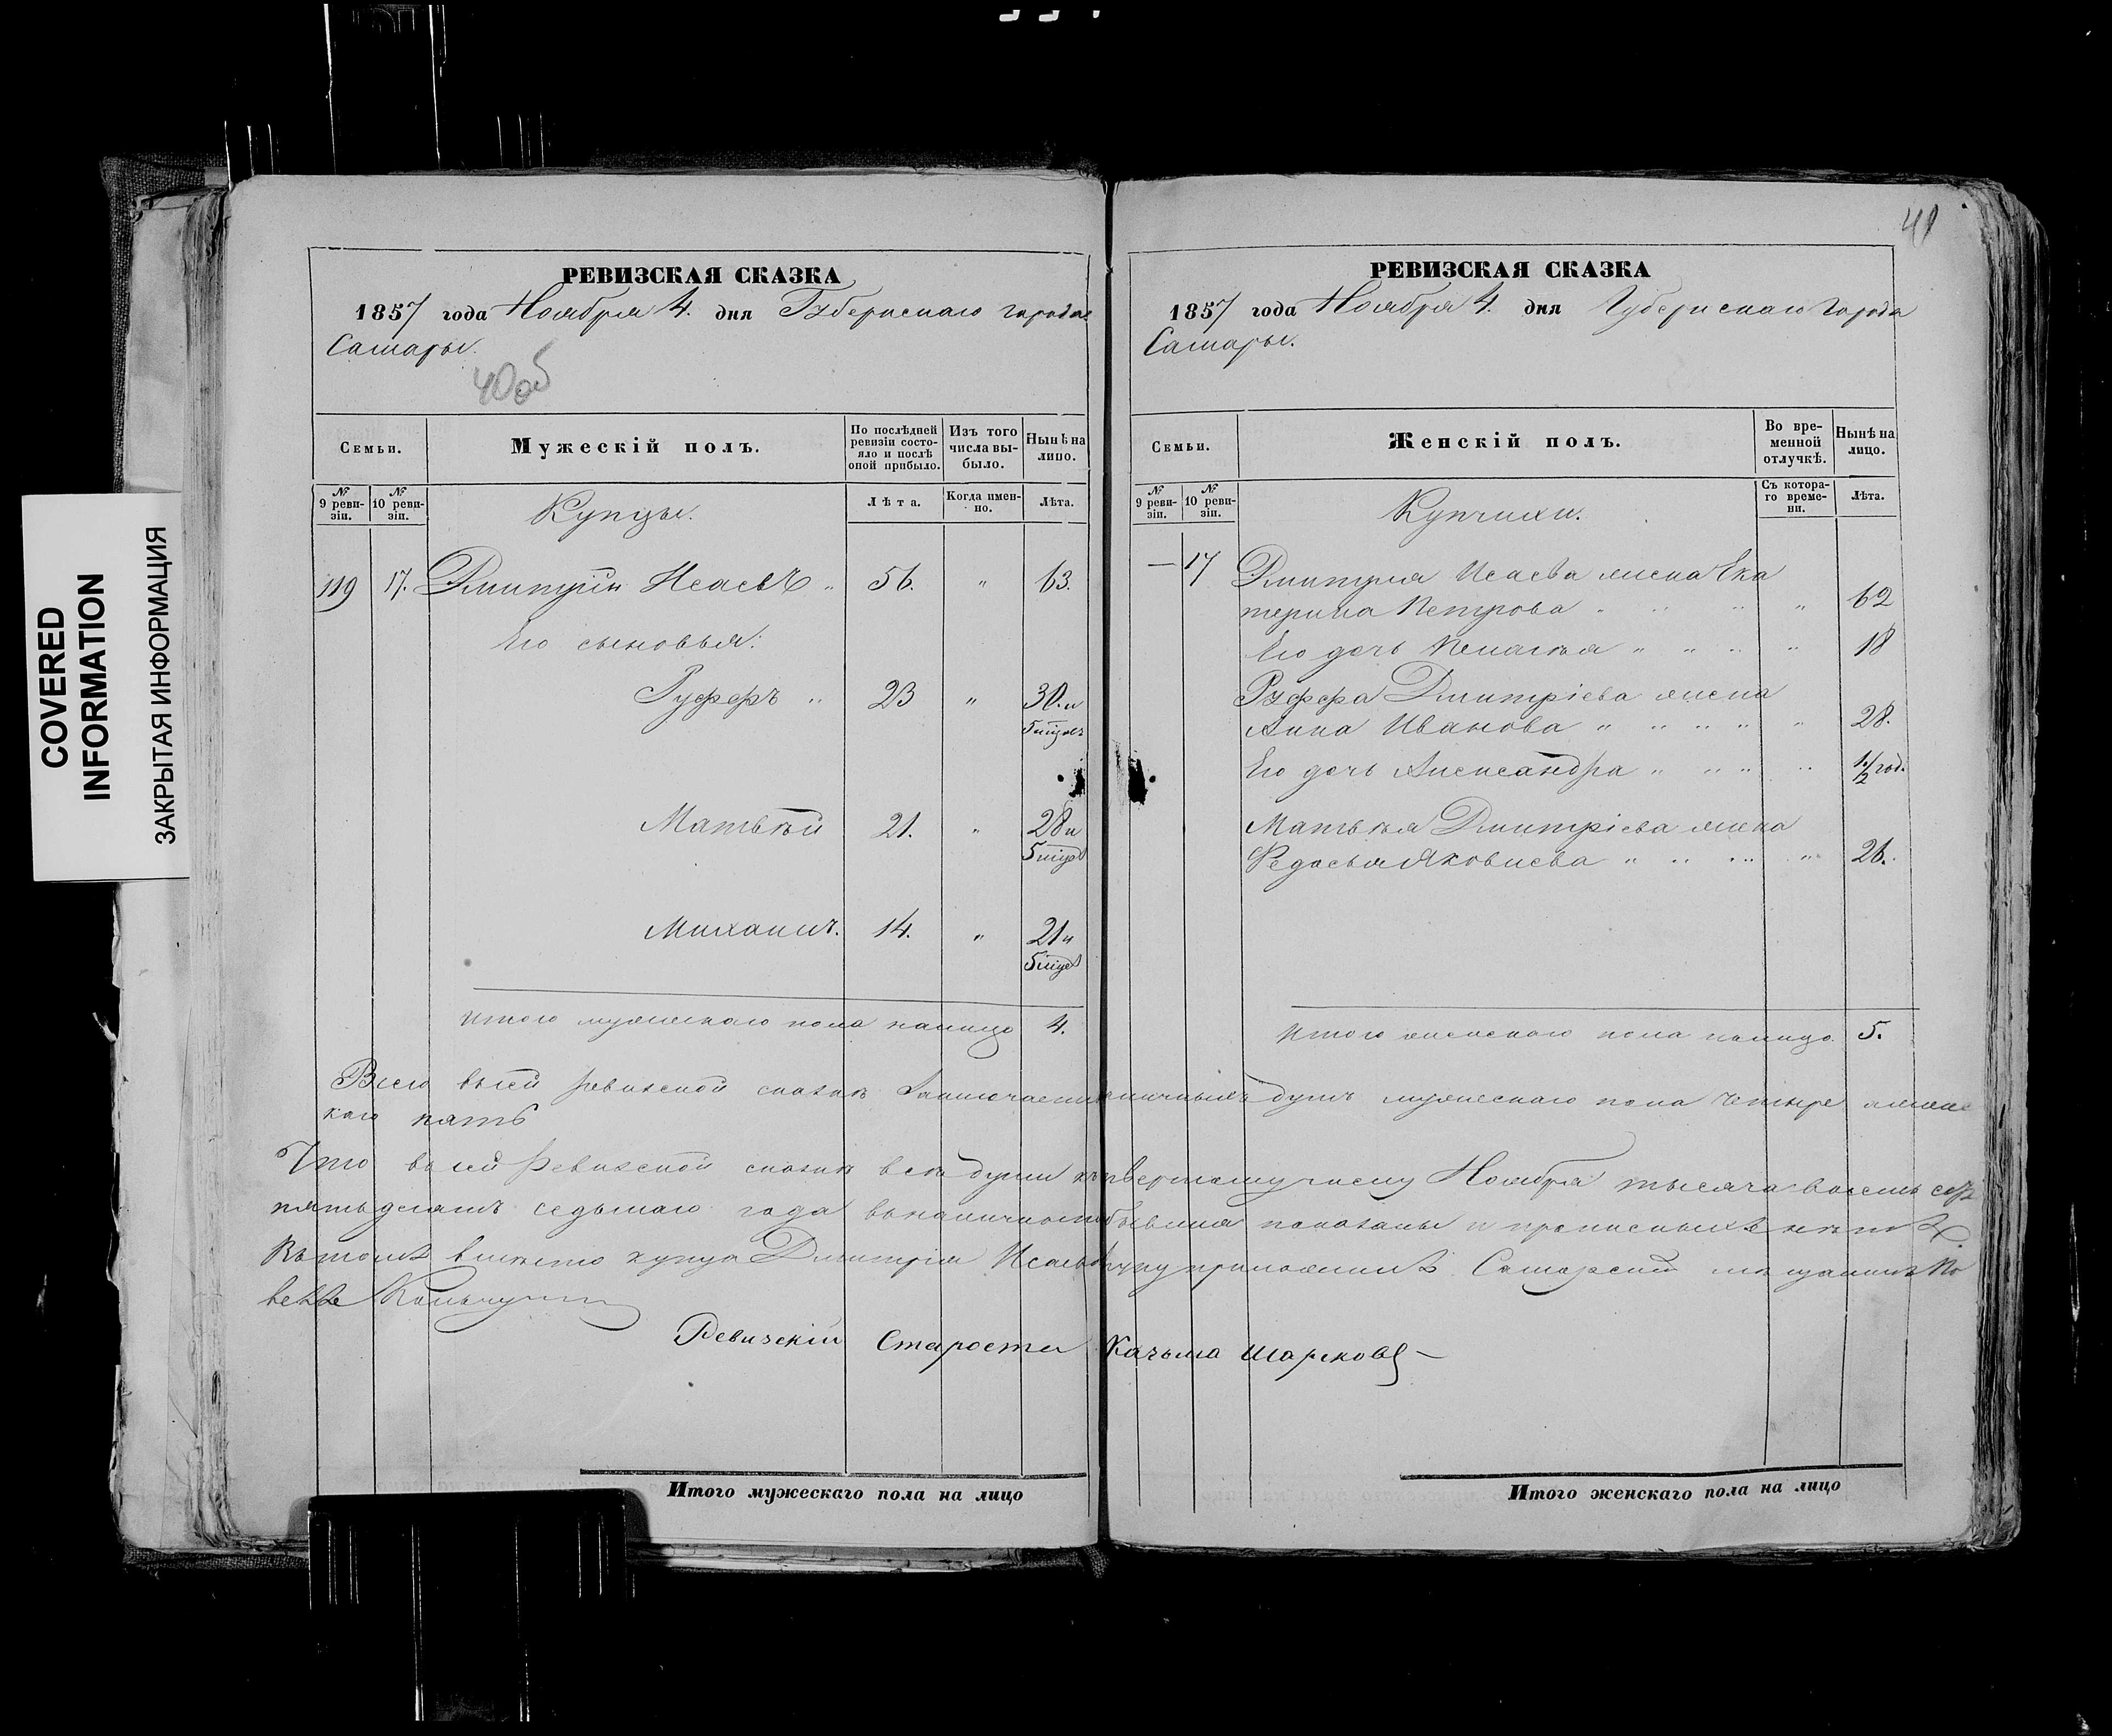 COVERED
INFORMATION
ЗАКРЫТАЯ ИНФОРМАЦИЯ
РЕВИЗСКАЯ СКАЗКА
1857 года Ноября 4. дня Губернскаго города
Самары.
40об
Семьи.
Мужескій полъ.
По послѣдней ревизіи состояло и послѣ оной прибыло.
Изъ того числа выбыло.
Нынѣ на лицо.
№ 9 ревизіи.
№ 10 ревизіи.
Купцы.
Лѣта.
Когда именно.
Лѣта.
119 17. Дмитрій Исаевъ " 56. " 63.
Его сыновья:
Руффъ " 23 " 30. и
5 місцов
Матвѣй 21. " 28 и
5 місц
Михаилъ. 14. " 21 и
5 місц
Итого мужескаго пола налицо 4.
41
РЕВИЗСКАЯ СКАЗКА
1857 года Ноября 4. дня Губернскаго города
Самары.
Семьи.
Женскій полъ.
Во временной отлучкѣ.
Нынѣ на лицо.
№ 9 ревизіи.
№ 10 ревизіи.
Купчихи.
Съ котораго времени.
Лѣта.
— 17 Дмитрія Исаева жена Ека
терина Петрова " " " " 62
Его дочь Пелагѣя " " " " 18
Руффа Дмитріева жена
Анна Иванова " " " " " 28.
Его дочь Александра " " " " 1/2 год.
Матвѣя Дмитріева жена
Федосья Яковлева " " " " " 26.
Итого женскаго пола налицо 5.
Всего въ сей ревизской сказкѣ заключается наличныхъ душъ мужескаго пола четыре а женс
каго пять
Что въ сей ревизской сказкѣ всѣ души къ четвертому числу Ноября тысяча восемь сотъ
пятьдесятъ седьмаго года въ наличности бывшія показаны и прописныхъ нѣтъ
Въ томъ вмѣсто купца Дмитрія Исаева руку приложилъ Самарскій мѣщанинъ
Ревизскій Староста Казьма Шарковъ
Итого мужескаго пола на лицо
Итого женскаго пола на лицо